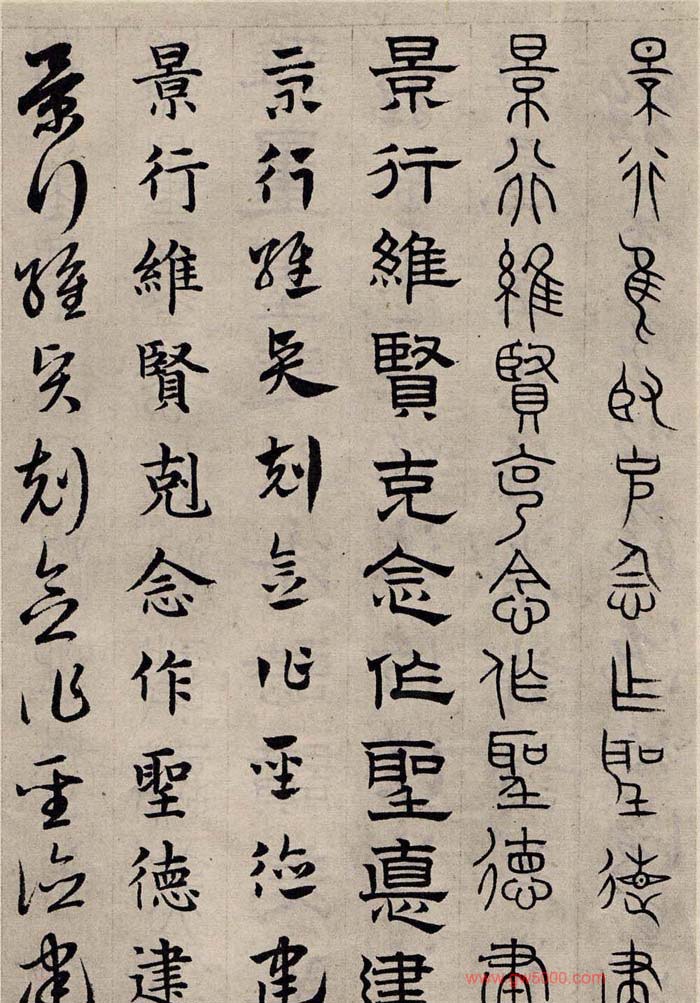 景行隹臤克念乍聖德聿
景行維賢克念作聖德聿
景行維賢克念作聖悳建
景行維賢剋念作聖德建
景行維賢剋念作聖德建
景行維賢剋念作聖德建